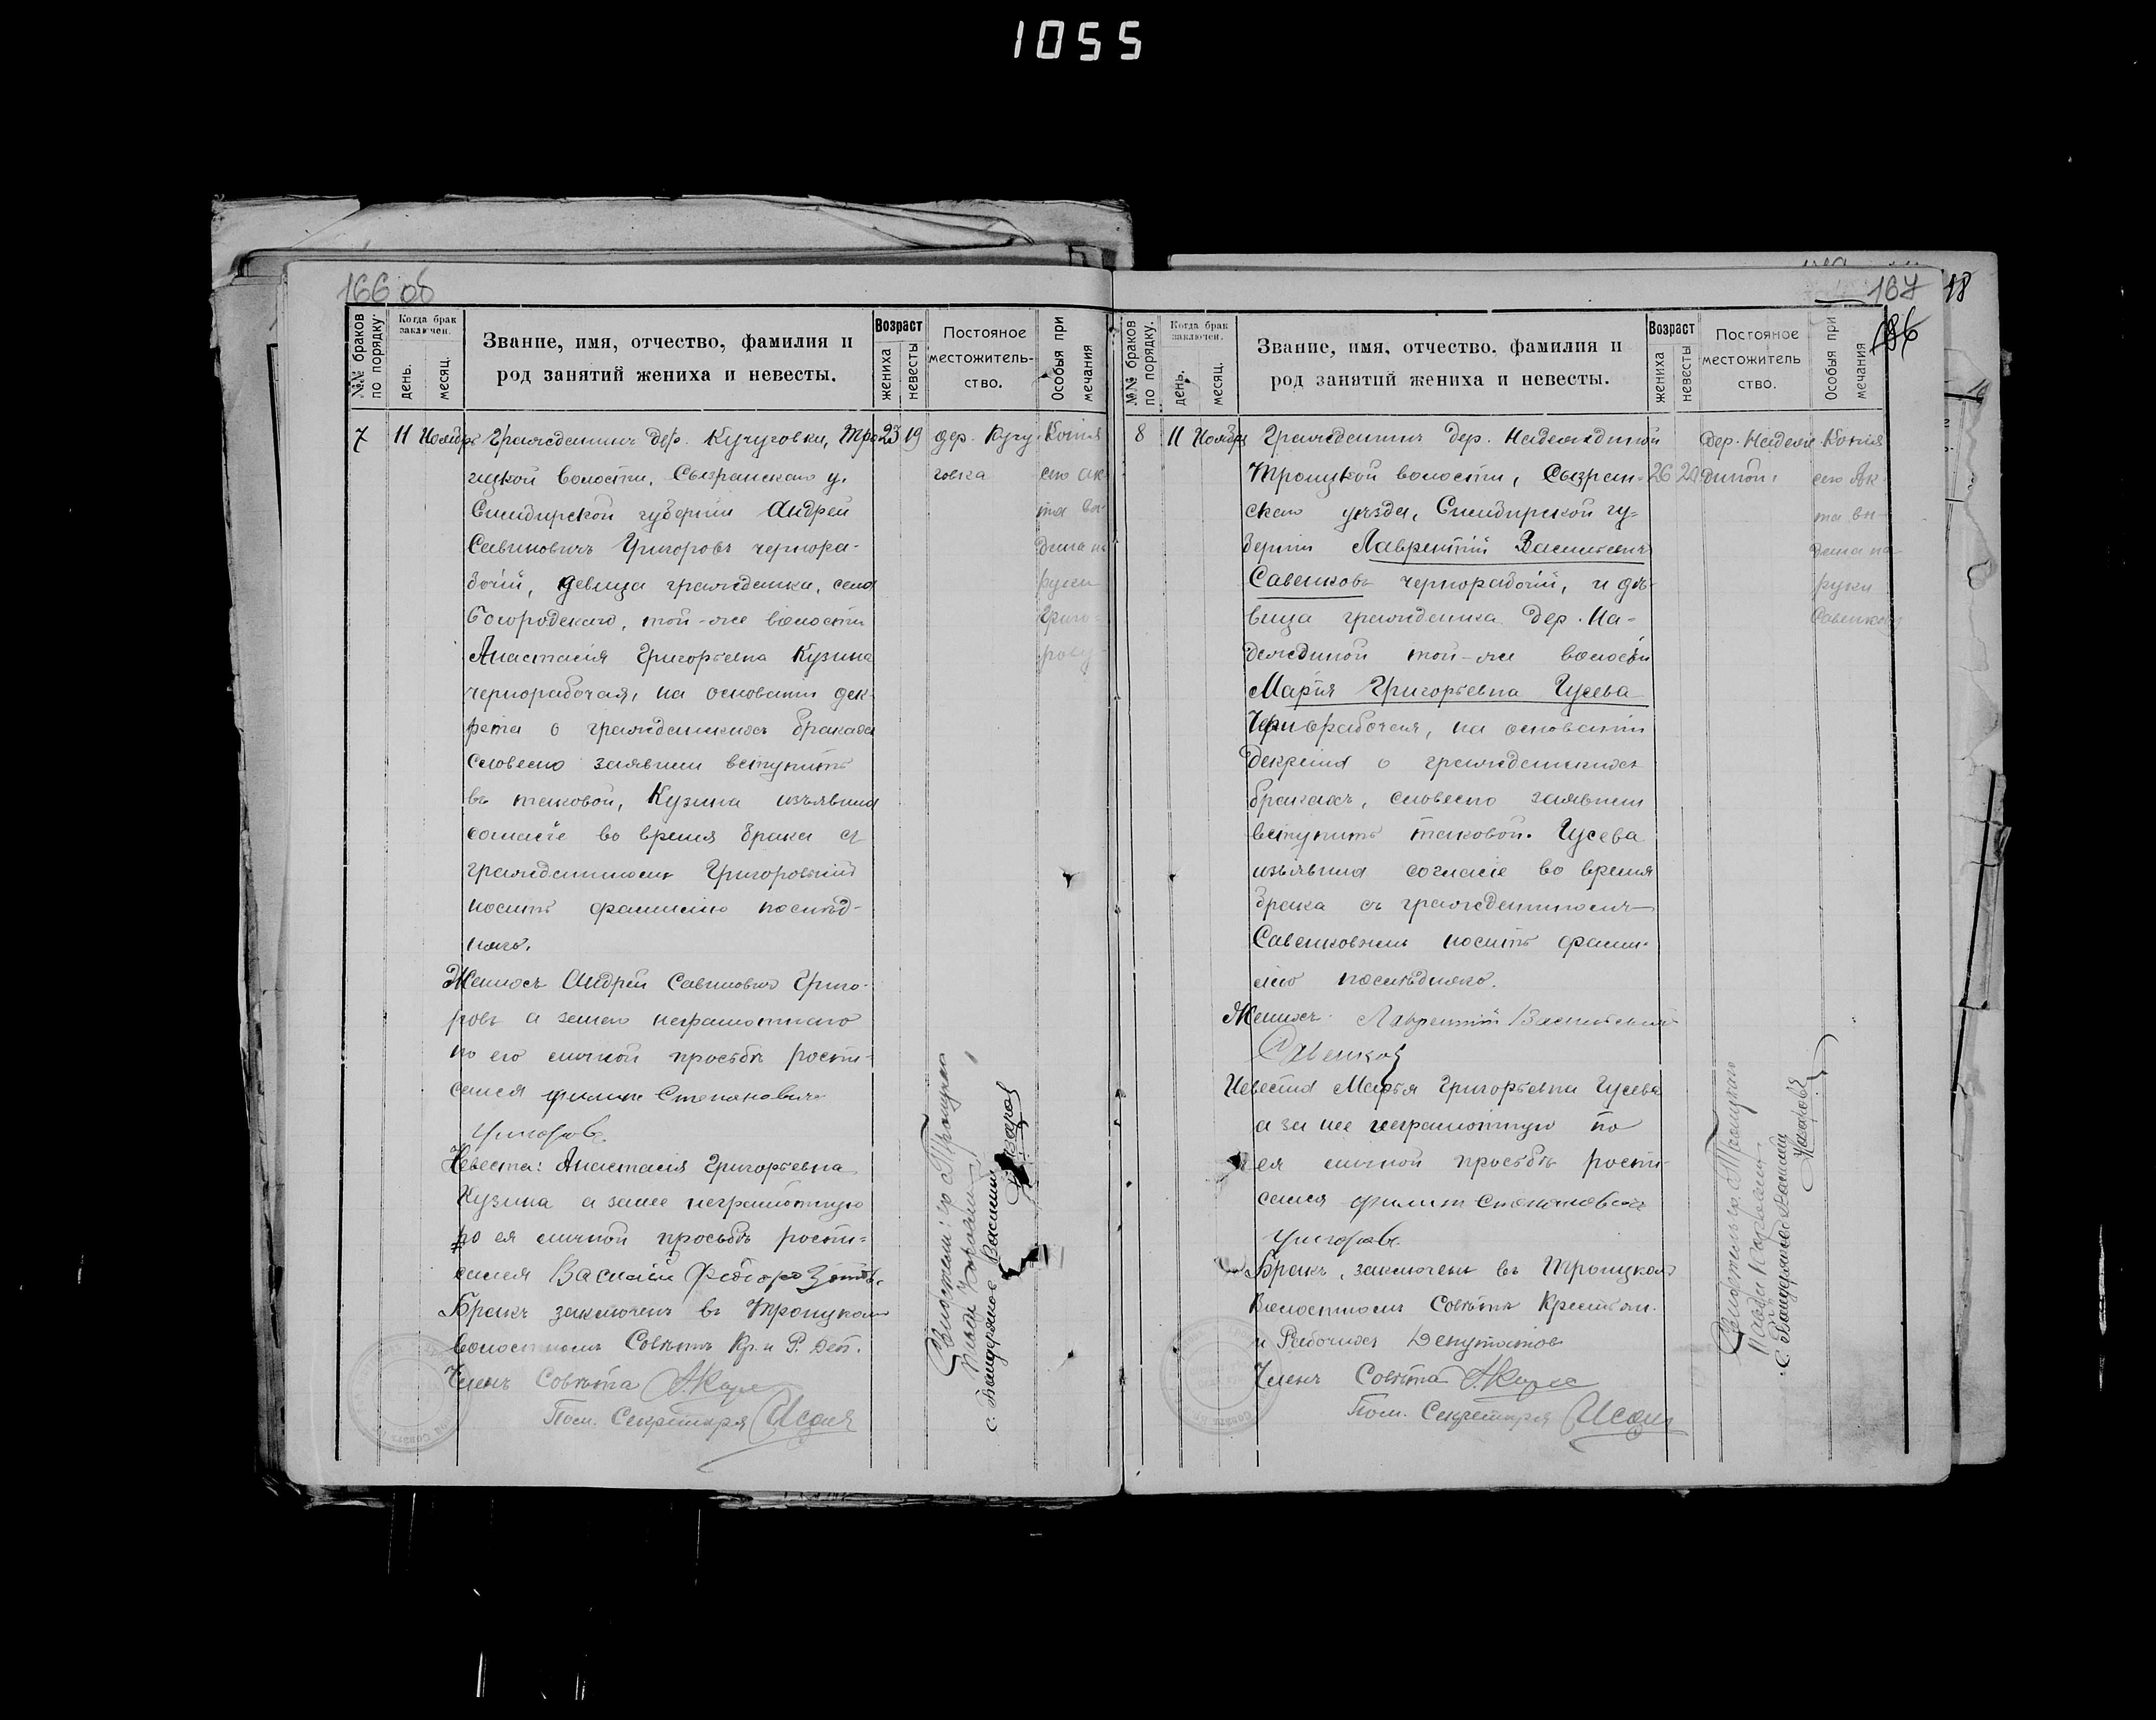 1055
166 об
№№ браков по порядку.
Когда брак заключен.
день.
месяц.
Звание, имя, отчество, фамилия и
род занятий жениха и невесты.
Возраст
жениха
невесты
Постояное
местожитель-
ство.
Особыя при
мечания
7
11 Ноября
Гражданинъ дер. Кучуговки, Тро-
ицкой волости, Сызранскаго у.
Симбирской губернiи Андрей
Савиновичъ Григоровъ чернора-
бочiй, девица гражданка, села
Богородскаго, той-же волости
Анастасiя Григорьевна Кузина
чернорабочая, на основанiи дек-
рета о гражданскихъ бракахъ
словесно заявили вступить
въ таковой, Кузина изъявила
согласiе во время брака съ
гражданиномъ Григоровымъ
носить фамилiю послѣд-
няго.
Женихъ Андрей Савиновичъ Григо-
ровъ а за него неграмотнаго
по его личной просьбѣ роспи-
сался Филипъ Степановичъ
Григоровъ
Невеста: Анастасiя Григорьевна
Кузина а за нее неграмотную
по ея личной просьбѣ роспи-
сался Василiй Федоро Зотовъ.
Бракъ заключенъ въ Троицкомъ
волостномъ Совѣтѣ Кр. и Р. Деп.
Членъ Совѣта
Пом. Секретаря
23
19
дер. Кучу
говка
Копiя
сего ак-
та вы-
дана на
руки
Григо-
рову
Свидѣтели: с. Троицкаго
с. Бандеряково Василий
167
18
№№ браков по порядку.
Когда брак заключен.
день.
месяц.
Звание, имя, отчество, фамилия и
род занятий жениха и невесты.
Возраст
жениха
невесты
Постояное
местожитель
ство.
Особыя при
мечания
8
11 Ноября
Гражданинъ дер. Надеждиной
Троицкой волости, Сызран-
скаго уѣзда, Симбирской гу-
бернiи Лаврентiй Васильевичъ
Савенковъ чернорабочiй, и дѣ-
вица гражданка дер. На-
деждиной той-же волости
Марiя Григорьевна Гусева
Чернорабочая, на основанiи
Декрета о гражданскихъ
бракахъ, словесно заявили
вступить таковой. Гусева
изъявила согласiе во время
брака съ гражданиномъ
Савенковымъ носить фами-
лiю послѣдняго.
Женихъ Лаврентiй Васильевичъ
Савенков
Невеста Марья Григорьевна Гусева
а за нее неграмотную по
ея личной просьбѣ роспи-
сался Филипп Степановичъ
Григоровъ.
Бракъ, заключенъ въ Троицкомъ
Волостномъ Совѣтѣ Крестьян.
и Рабочихъ Депутатов
Членъ Совѣта
Пом. Секретаря
26
20
Дер. Надеж
диной.
Копiя
сего Ак-
та вы-
дана на
руки
Савенкову
Свидѣтели: с. Троицкаго
с. Бандеряково Василий
Назаровъ